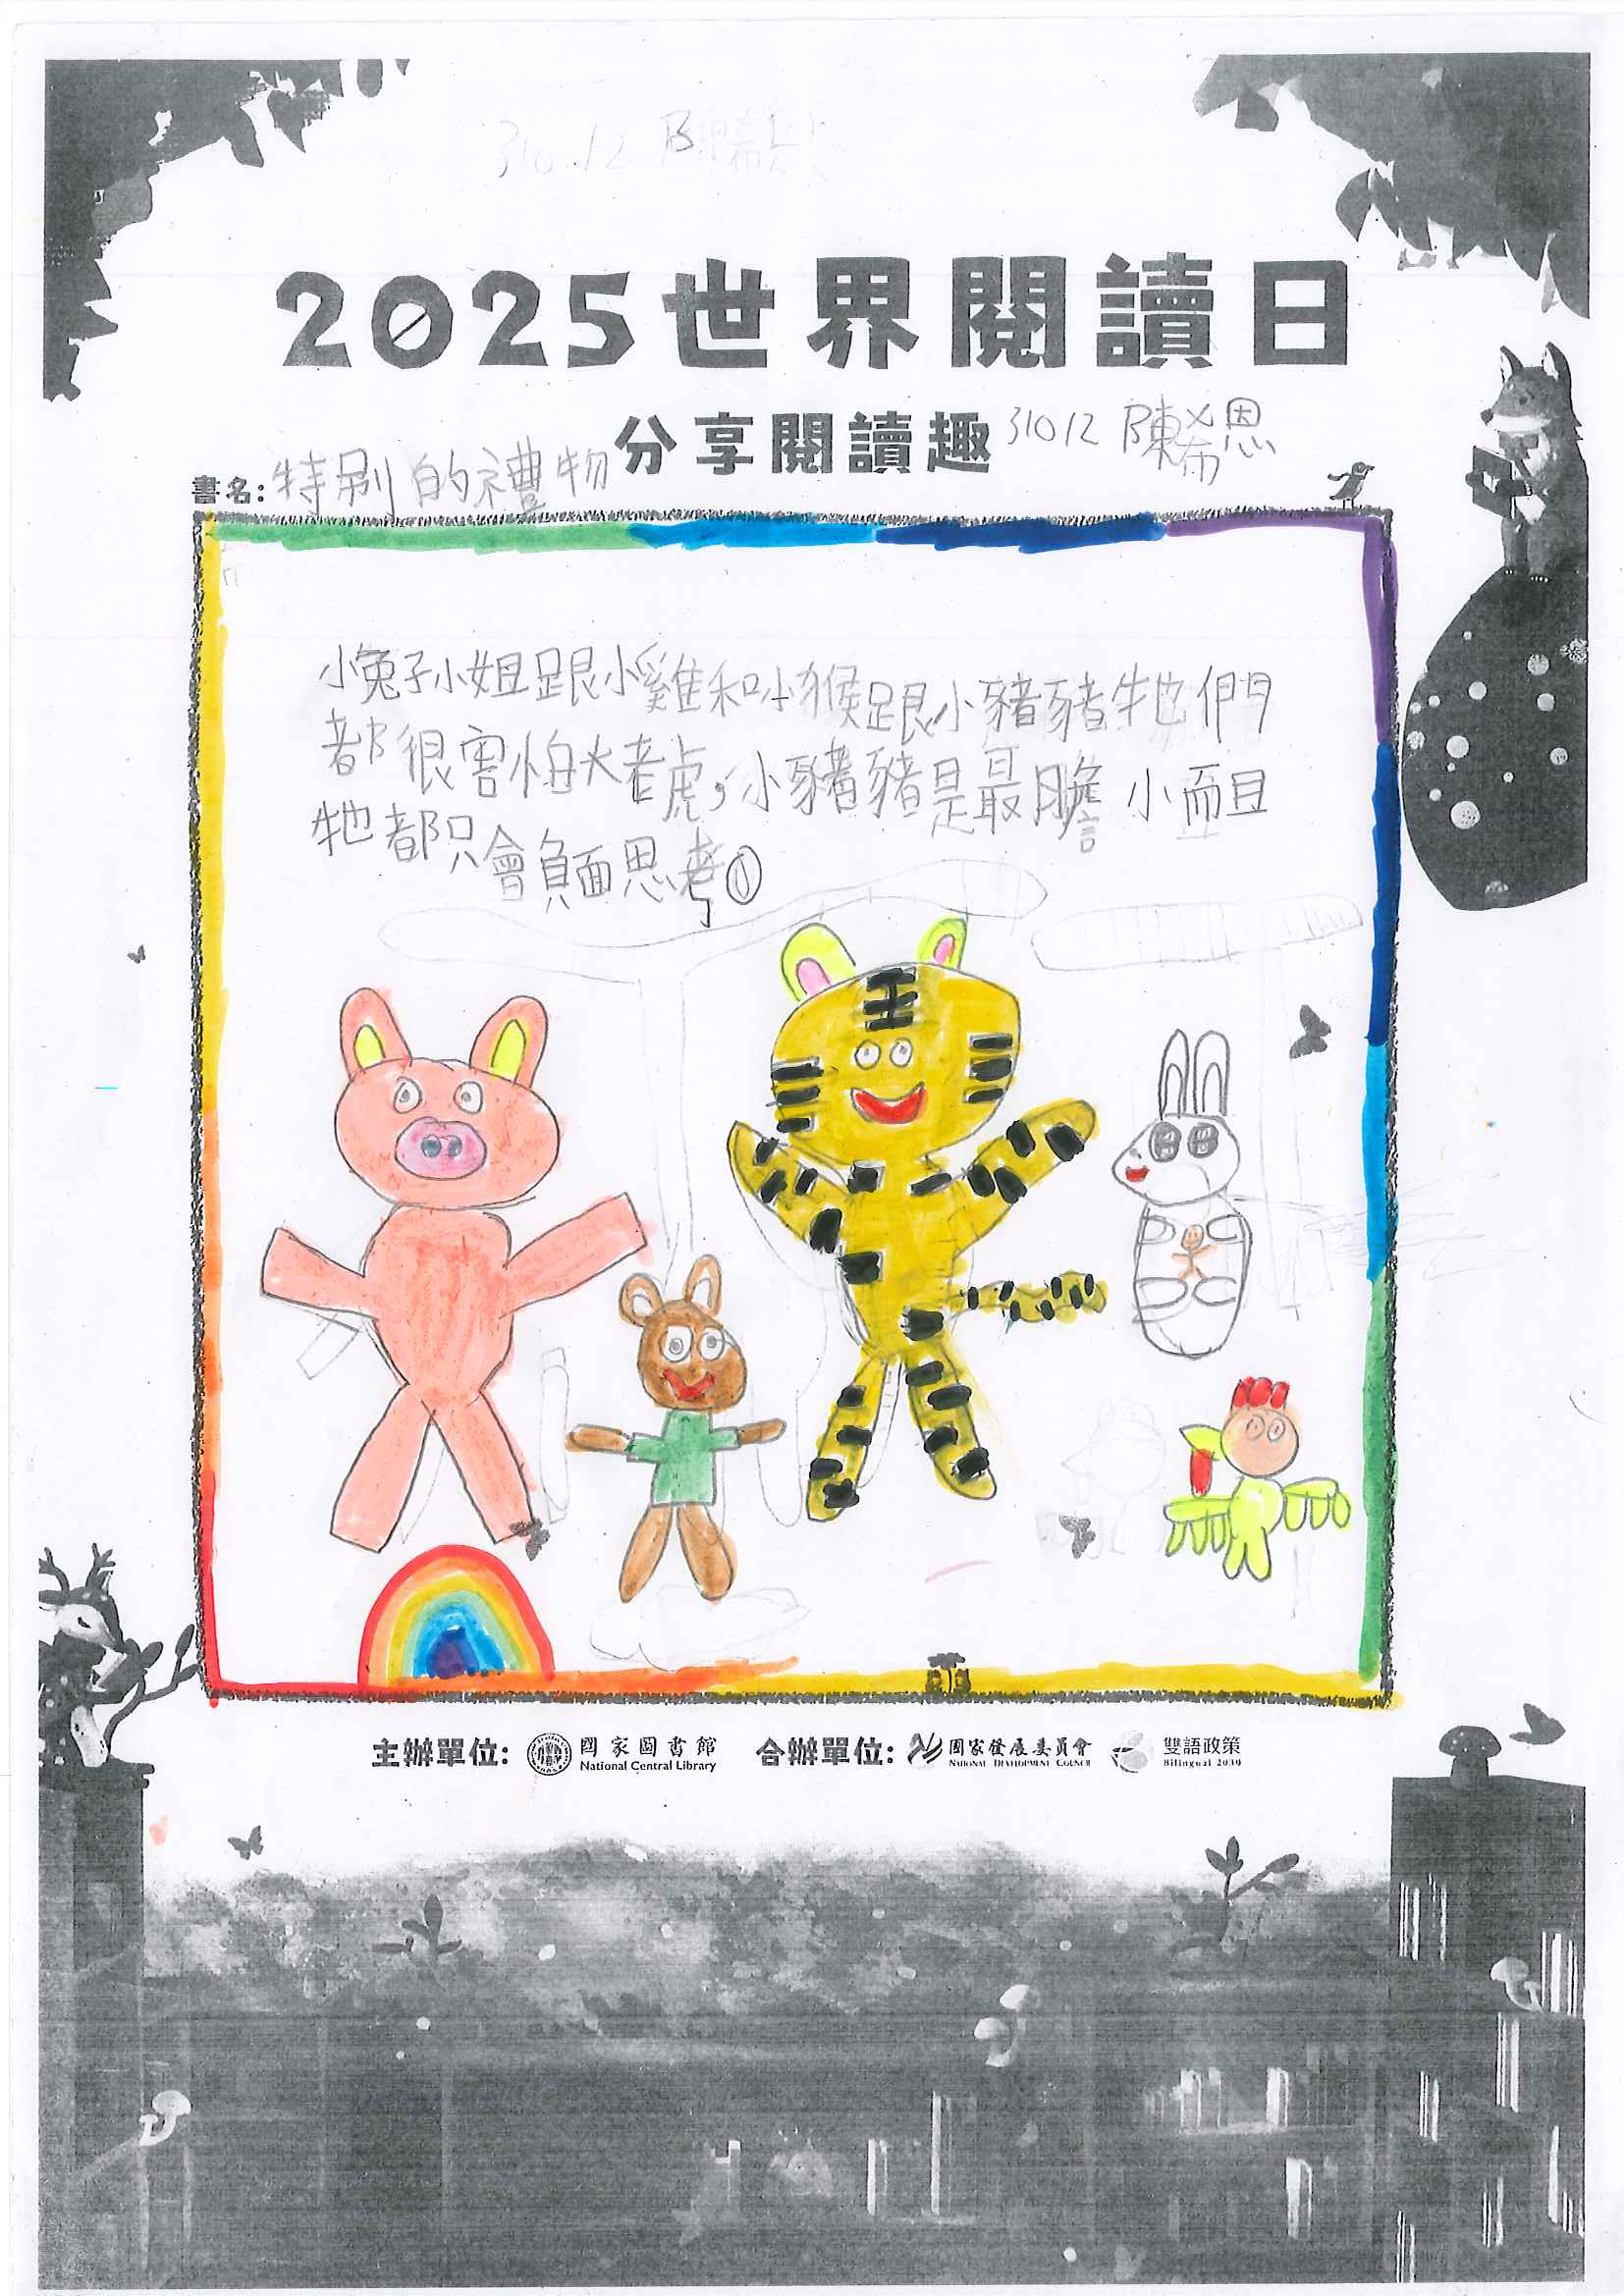 31012 陳希
2025世界閱讀日
分享閱讀趣 31012 陳希恩
書名: 特別的禮物
小兔子小姐跟小雞和小猴跟小豬豬牠們
都很害怕大老虎,小豬豬是最膽小而且
牠都只會負面思考。
王
主辦單位: 國家圖書館 National Central Library 合辦單位: 國家發展委員會 NATIONAL DEVELOPMENT COUNCIL 雙語政策 Bilingual 2030